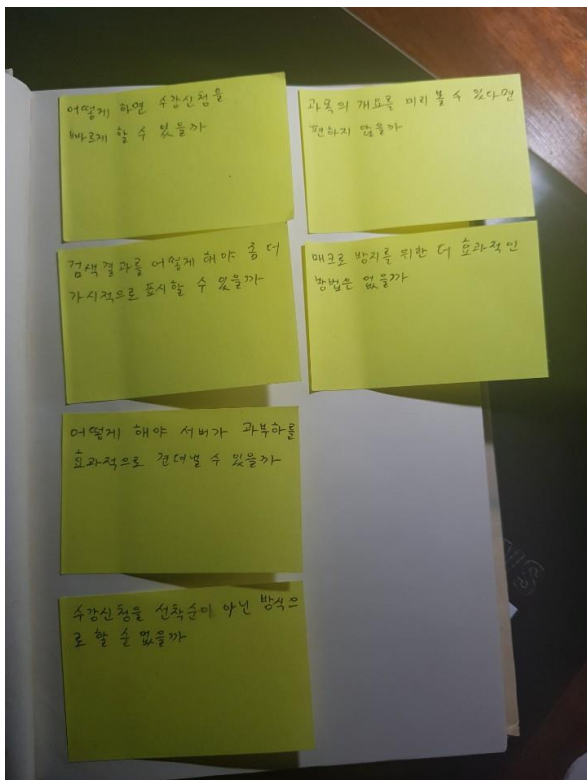 어떻게 하면 수강신청을
빠르게 할 수 있을까
검색결과를 어떻게 해야 좀 더
가시적으로 표시할 수 있을까
어떻게 해야 서버가 과부하를
효과적으로 견뎌낼 수 있을까
수강신청을 선착순이 아닌 방식으
로 할 순 없을까
과목의 개요를 미리 볼 수 있다면
편하지 않을까
매크로 방지를 위한 더 효과적인
방법은 없을까